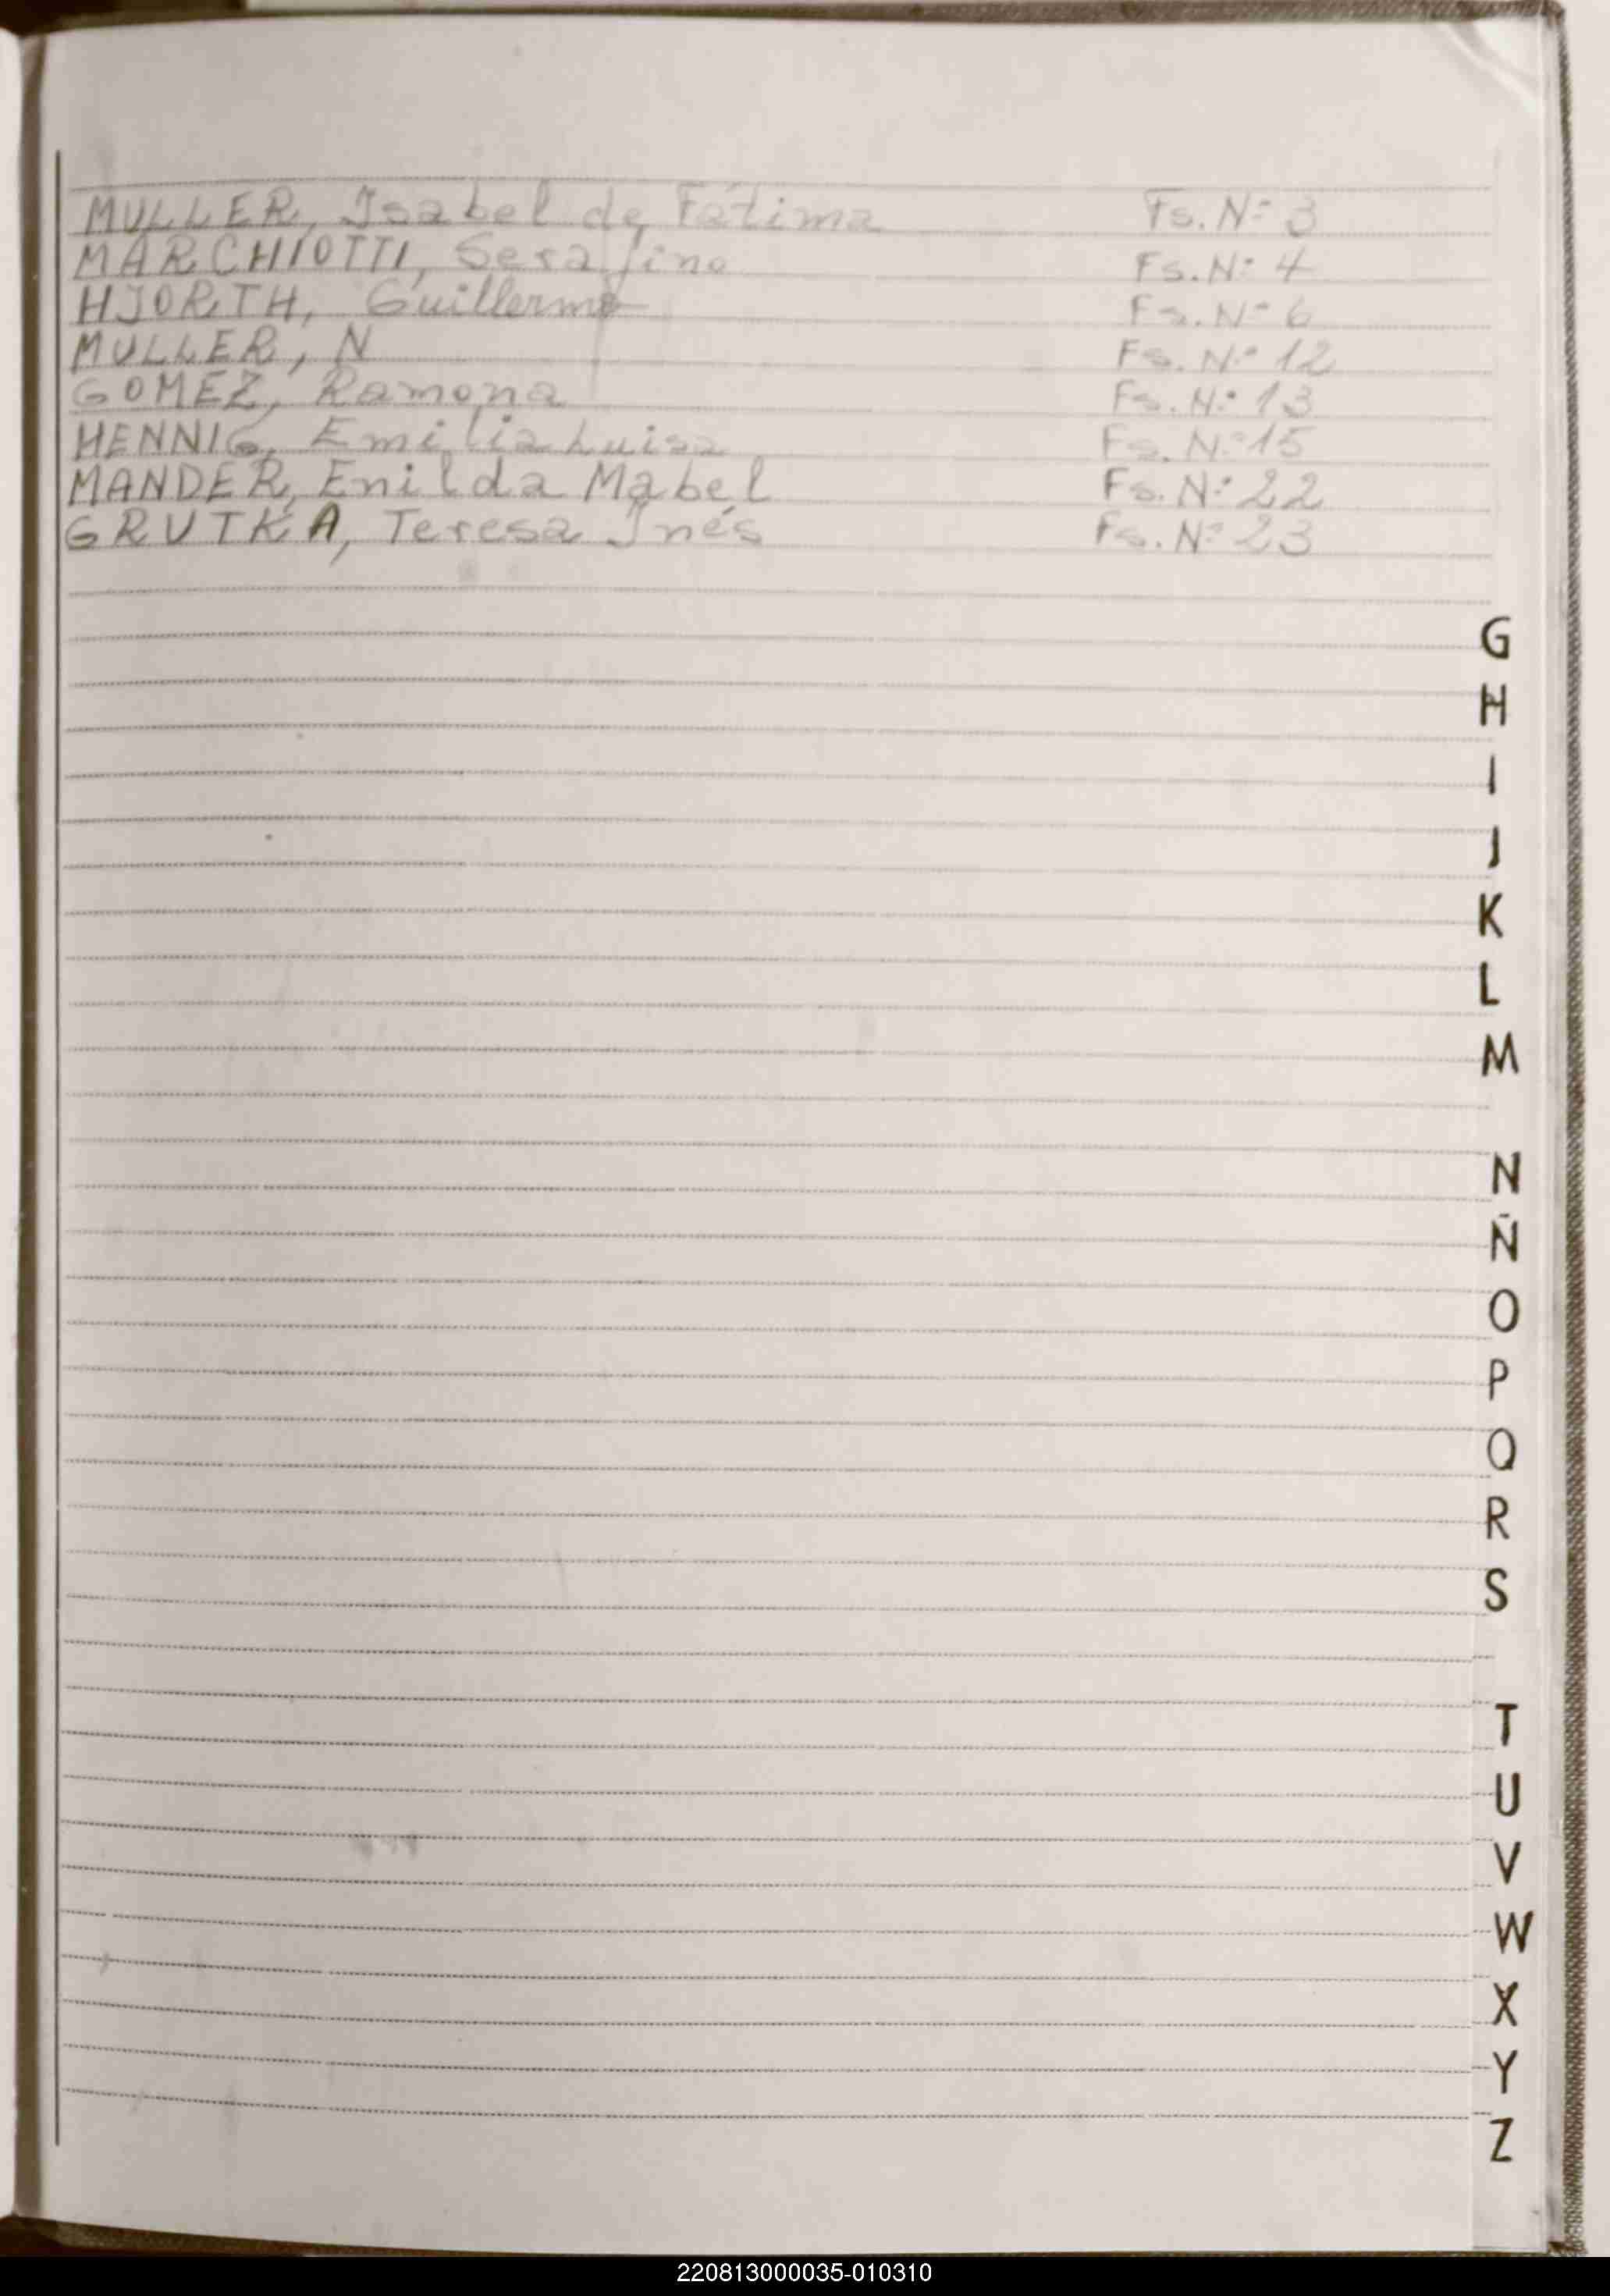 MULLER, Isabel de Fátima Fs. Nº 3
MARCHIOTTI, Serafino Fs. Nº 4
HJORTH, Guillermo Fs. Nº 6
MULLER, N Fs. Nº 12
GOMEZ, Ramona Fs. Nº 13
HENNIG, Emilia Luisa Fs. Nº 15
MANDER, Enilda Mabel Fs. Nº 22
GRUTKA, Teresa Inés Fs. Nº 23
G
H
I
J
K
L
M
N
Ñ
O
P
Q
R
S
T
U
V
W
X
Y
Z
220813000035-010310